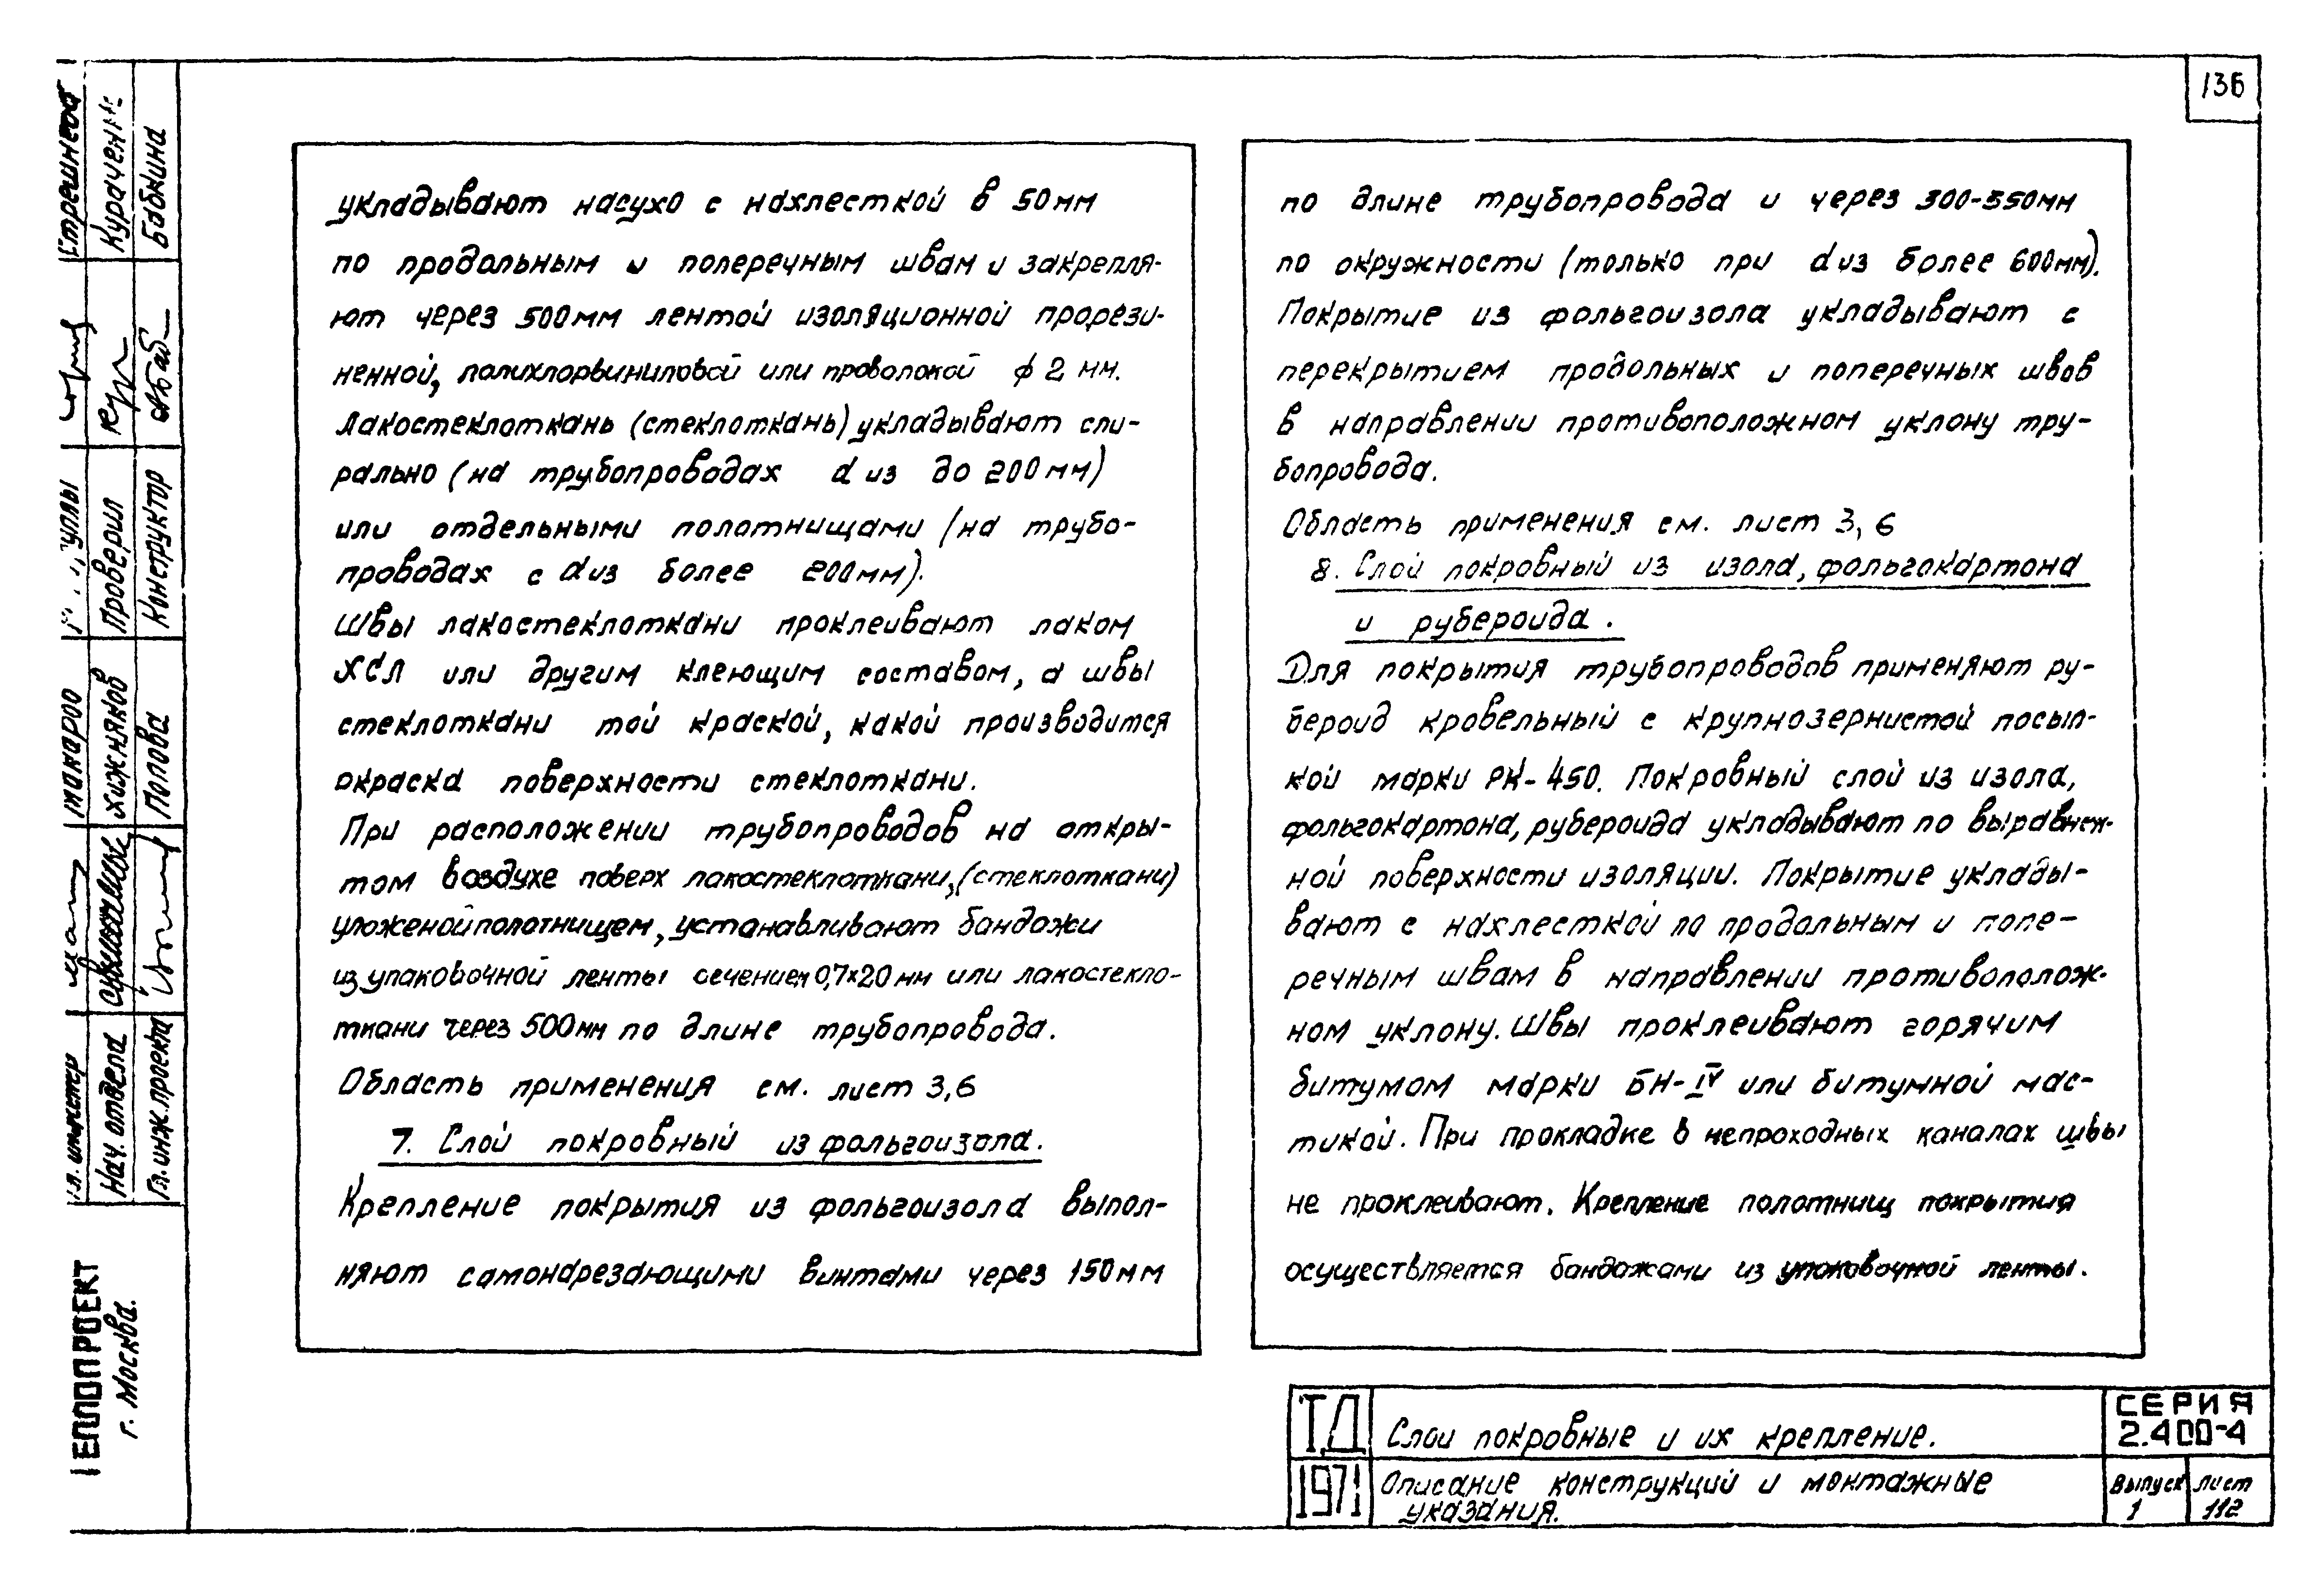 136
укладывают насухо с нахлесткой в 50мм
по продольным и поперечным швам и закрепля-
ют через 500мм лентой изоляционной прорези-
ненной, полихлорвиниловой или проволокой ф 2 мм.
Лакостеклоткань (стеклоткань) укладывают спи-
рально (на трубопроводах dиз до 200мм)
или отдельными полотнищами (на трубо-
проводах с dиз более 200мм).
Швы лакостеклоткани проклеивают лаком
ХСЛ или другим клеющим составом, а швы
стеклоткани той краской, какой производится
окраска поверхности стеклоткани.
При расположении трубопроводов на откры-
том воздухе поверх лакостеклоткани, (стеклоткани)
уложеной полотнищем, устанавливают бандажи
из упаковочной ленты сечением 0,7х20мм или лакостекло-
ткани через 500мм по длине трубопровода.
Область применения см. лист 3,6
7. Слой покровный из фольгоизола.
Крепление покрытия из фольгоизола выпол-
няют самонарезающими винтами через 150мм
по длине трубопровода и через 300-350мм
по окружности (только при dиз более 600мм).
Покрытие из фольгоизола укладывают с
перекрытием продольных и поперечных швов
в направлении противоположном уклону тру-
бопровода.
Область применения см. лист 3, 6
8. Слой покровный из изола, фольгокартона
и рубероида.
Для покрытия трубопроводов применяют ру-
бероид кровельный с крупнозернистой посып-
кой марки РК-450. Покровный слой из изола,
фольгокартона, рубероида укладывают по выравнен-
ной поверхности изоляции. Покрытие уклады-
вают с нахлесткой по продольным и попе-
речным швам в направлении противополож-
ном уклону. Швы проклеивают горячим
битумом марки БН-IV или битумной мас-
тикой. При прокладке в непроходных каналах швы
не проклеивают. Крепление полотнищ покрытия
осуществляется бандажами из упаковочной ленты.
ТД
1971
Слои покровные и их крепление.
Описание конструкций и монтажные
указания.
СЕРИЯ
2.400-4
Выпуск
1
лист
112
Нач. отдела
Хижняков
Проверил
Гл. инж. проекта
Попова
Конструктор
Бабкина
г. Москва.